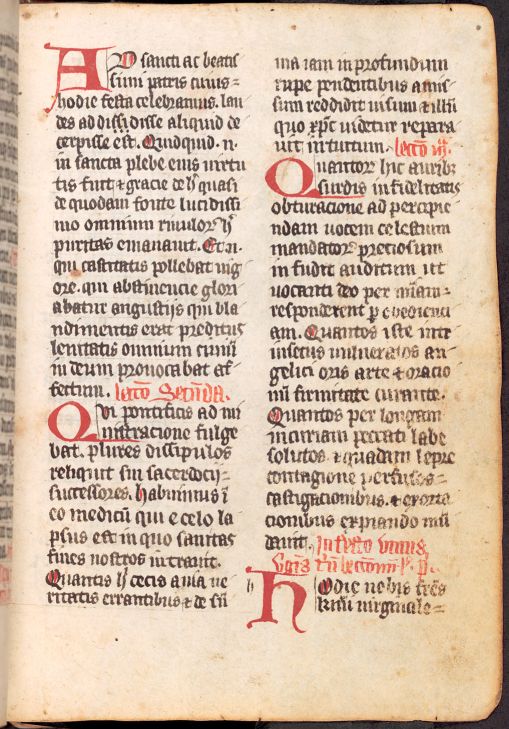 AD sancti ac beatis
simi patris cuius=
hodie festa celebramus. lau
des addidisse aliquid de
cerpisse est. Quidquid .n.
in sancta plebe eius virtu
tis fuit & gracie de hͦ quasi
de quodam fonte lucidissi
mo omnium rivulorum hͨ
puritas emanavit. Et .n.
qui castitatis pollebat vig
ore. qui abstinencie glori
abatur angustijs qui bla
ndimentis erat preditus
lenitatis omnium cuniū
in deum provocabat af=
fectum. lectō Secūda.
Qvi pontificis ad mi
nistracione fulge
bat. plures discipulos
reliquit sui sacerdocij=
successores. habuimus ī
eo medicū qui e celo la
psus est in quo sanitas
fines nostros intravit.
Quantis hͨ cecis a via ve
ritatis errantibus & de sū
ma iam in profundum
rupe pendentibus amis=
sum reddidit visum & illū
quo xp̄c videtur repara
vit intuitum. lectō iij.
Quantor hic aurib;
surdis infidelitatis
obturacione ad percipie
ndam vocem celestium
mandator preciosum
in fudit auditum ut
vocanti deo per mīam=
responderent p obedienci
am. Quantos iste intr
insecus vulneratos an=
gelici oris arte & oracio
nū firmitate curavit.
Quantos per longam
incuriam peccati labe
solutos & quadam lepre
contagione perfusos=
castigacionibus. & exorta
cionibus expiando mū
davit. In festo vnius
vgīs
Hodie nobis frēs
kmi virginale=
h